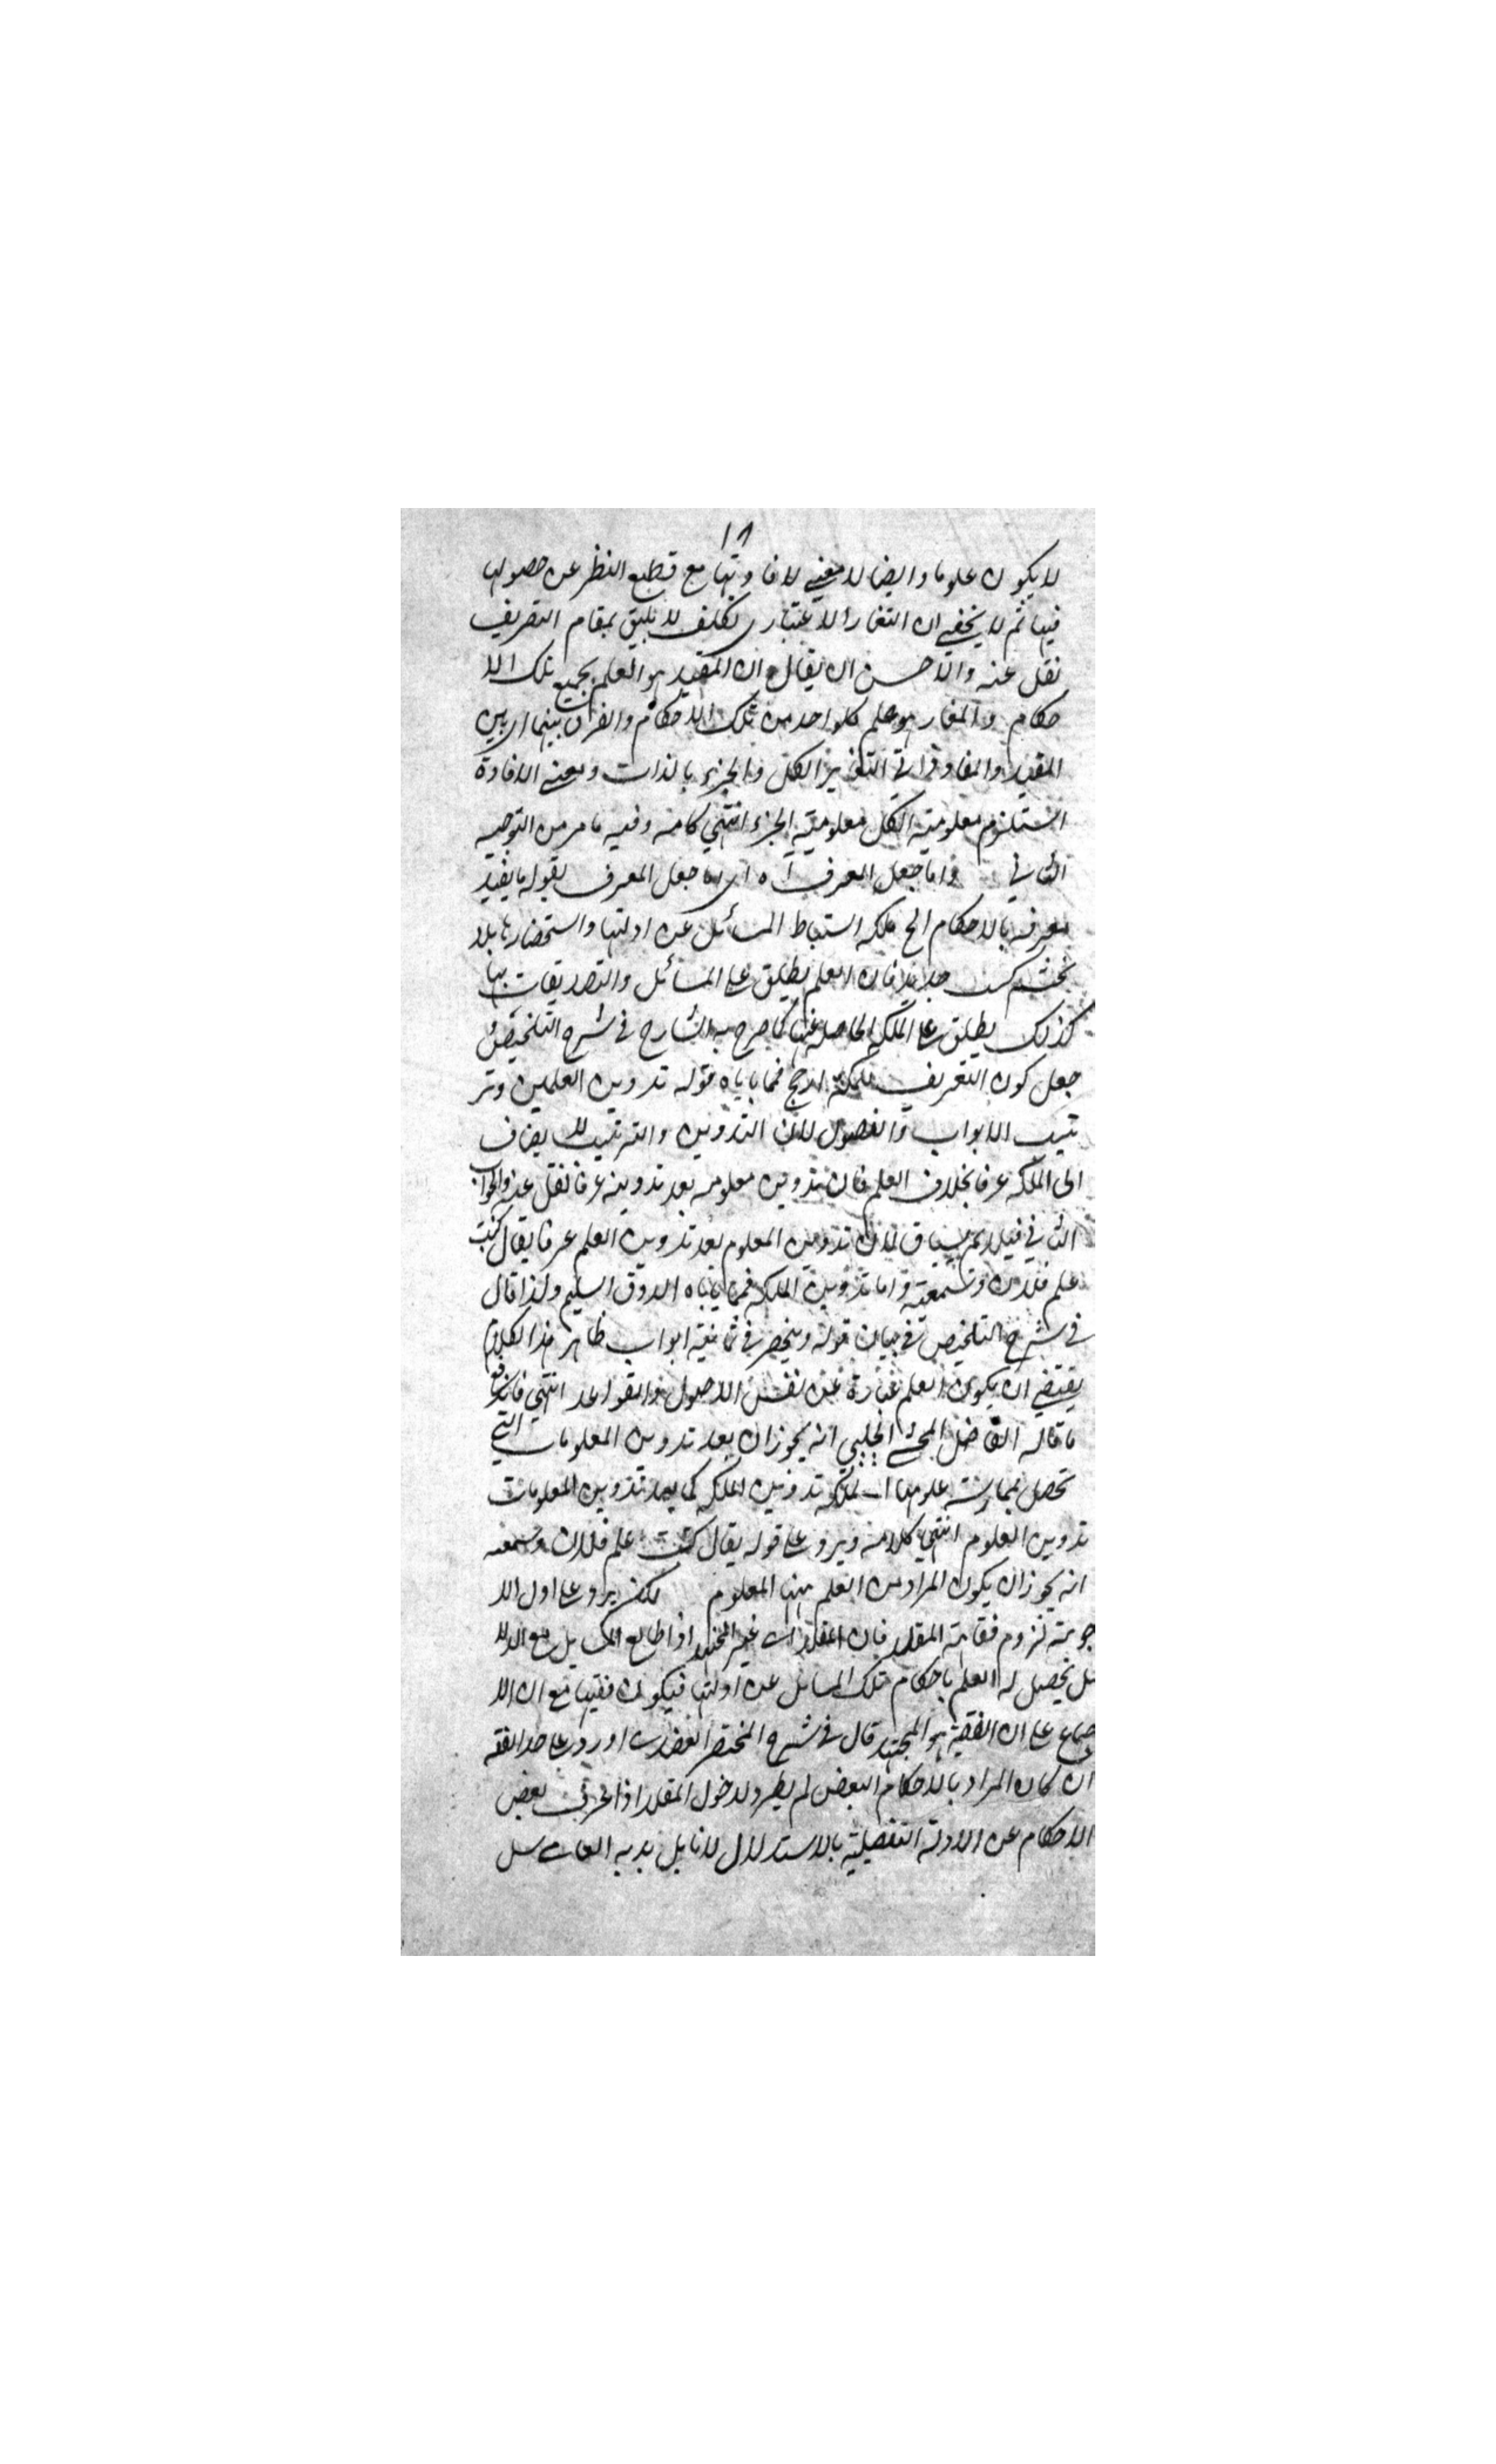 ١٨
لا يكون علوما وايضا لا معنى لافادتها مع قطع النظر عن حصولها
فيها ثم لا يخفى ان التغاير الاعتباري تكلف لا يليق بمقام التعريف
نقل عنه والاحسن ان يقال ان المفيد هو العلم بجميع تلك الا
حكام والمفاد هو علم كلواحد من تلك الاحكام والفرق بينهما اى بين
المفيد والمفاد فرق التغاير الكل والجزء بالذات ومعنى الافادة
استلزم معلومية الكل معلومية الجزء انتهى كلامه وفيه ما مر من التوجيه
الثاني واما جعل المعرف آه اى اما جعل المعرف بقوله ما يفيد
معرفة بالاحكام الخ ملكه استنباط المسائل عن ادلتها واستحضارها بلا
تجشم كسب جديد فان العلم يطلق على المسائل والتصديقات بها
كذلك يطلق على الملكه الحاصلة عنها كما صرح به الشارح في شرح التلخيص و
جعل كون التعريف للملكة ارجح فمما ياباه قوله تدوين العلمين وتر
تيب الابواب والفصول لان التدوين والترتيب لا يضاف
الى الملكه عرفا بخلاف العلم فان تدوين معلومه يعد تدوينه عرفا نقل عنه والجواب
الثاني فيلايم سياق لان تدوين المعلوم يعد تدوين العلم عرفا يقال كتبت
علم فلان وسمعته واما تدوين الملكه فمما ياباه الذوق السليم ولذا قال
في شرح التلخيص في بيان قوله وينحصر في ثمانية ابواب ظاهر هذا الكلام
يقتضى ان يكون العلم عبارة عن نفس الاصول والقواعد انتهى فاندفع
ما قاله الفاضل المحشى الجلبي انه يجوز ان يعد تدوين المعلومات التي
تحصل بممارسة علومها الملكه تدوين الملكه كما يعد تدوين المعلومات
تدوين العلوم انتهى كلامه ويرد على قوله يقال كتبت علم فلان وسمعته
انه يجوز ان يكون المراد من العلم منها المعلوم لكن يرد على اول الا
جوبته لزوم فقاهة المقلد فان المقلد اى غير المجتهد اذا طالع المسايل مع الدلا
ئل يحصل له العلم باحكام تلك المسائل عن ادلتها فيكون فقيها مع ان الا
جماع على ان الفقيه هو المجتهد قال في شرح المختصر العضدى اورد على حد الفقه
ان كان المراد بالاحكام البعض لم يطرد لدخول المقلد اذا عرف بعض
الاحكام عن الادلة التفصيلية بالاستدلال لانا